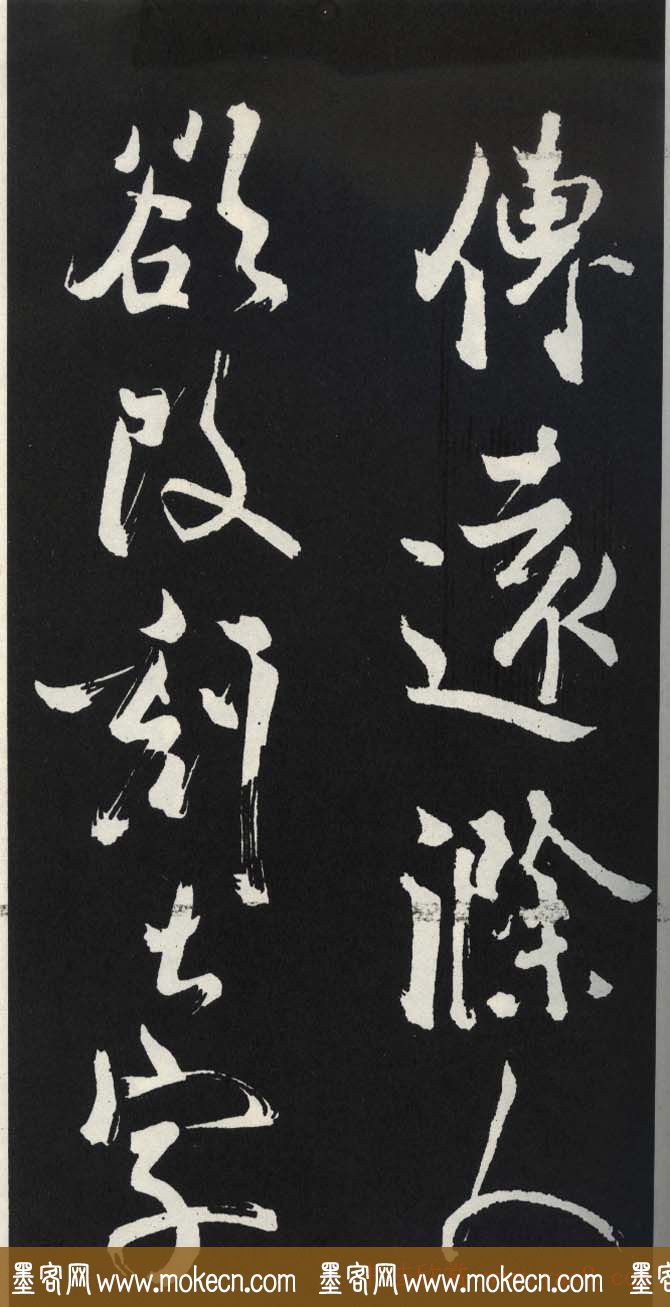 傳遠滁人
欲改刻大字
墨客网 www.mokecn.com 墨客网 www.mokecn.com 墨客